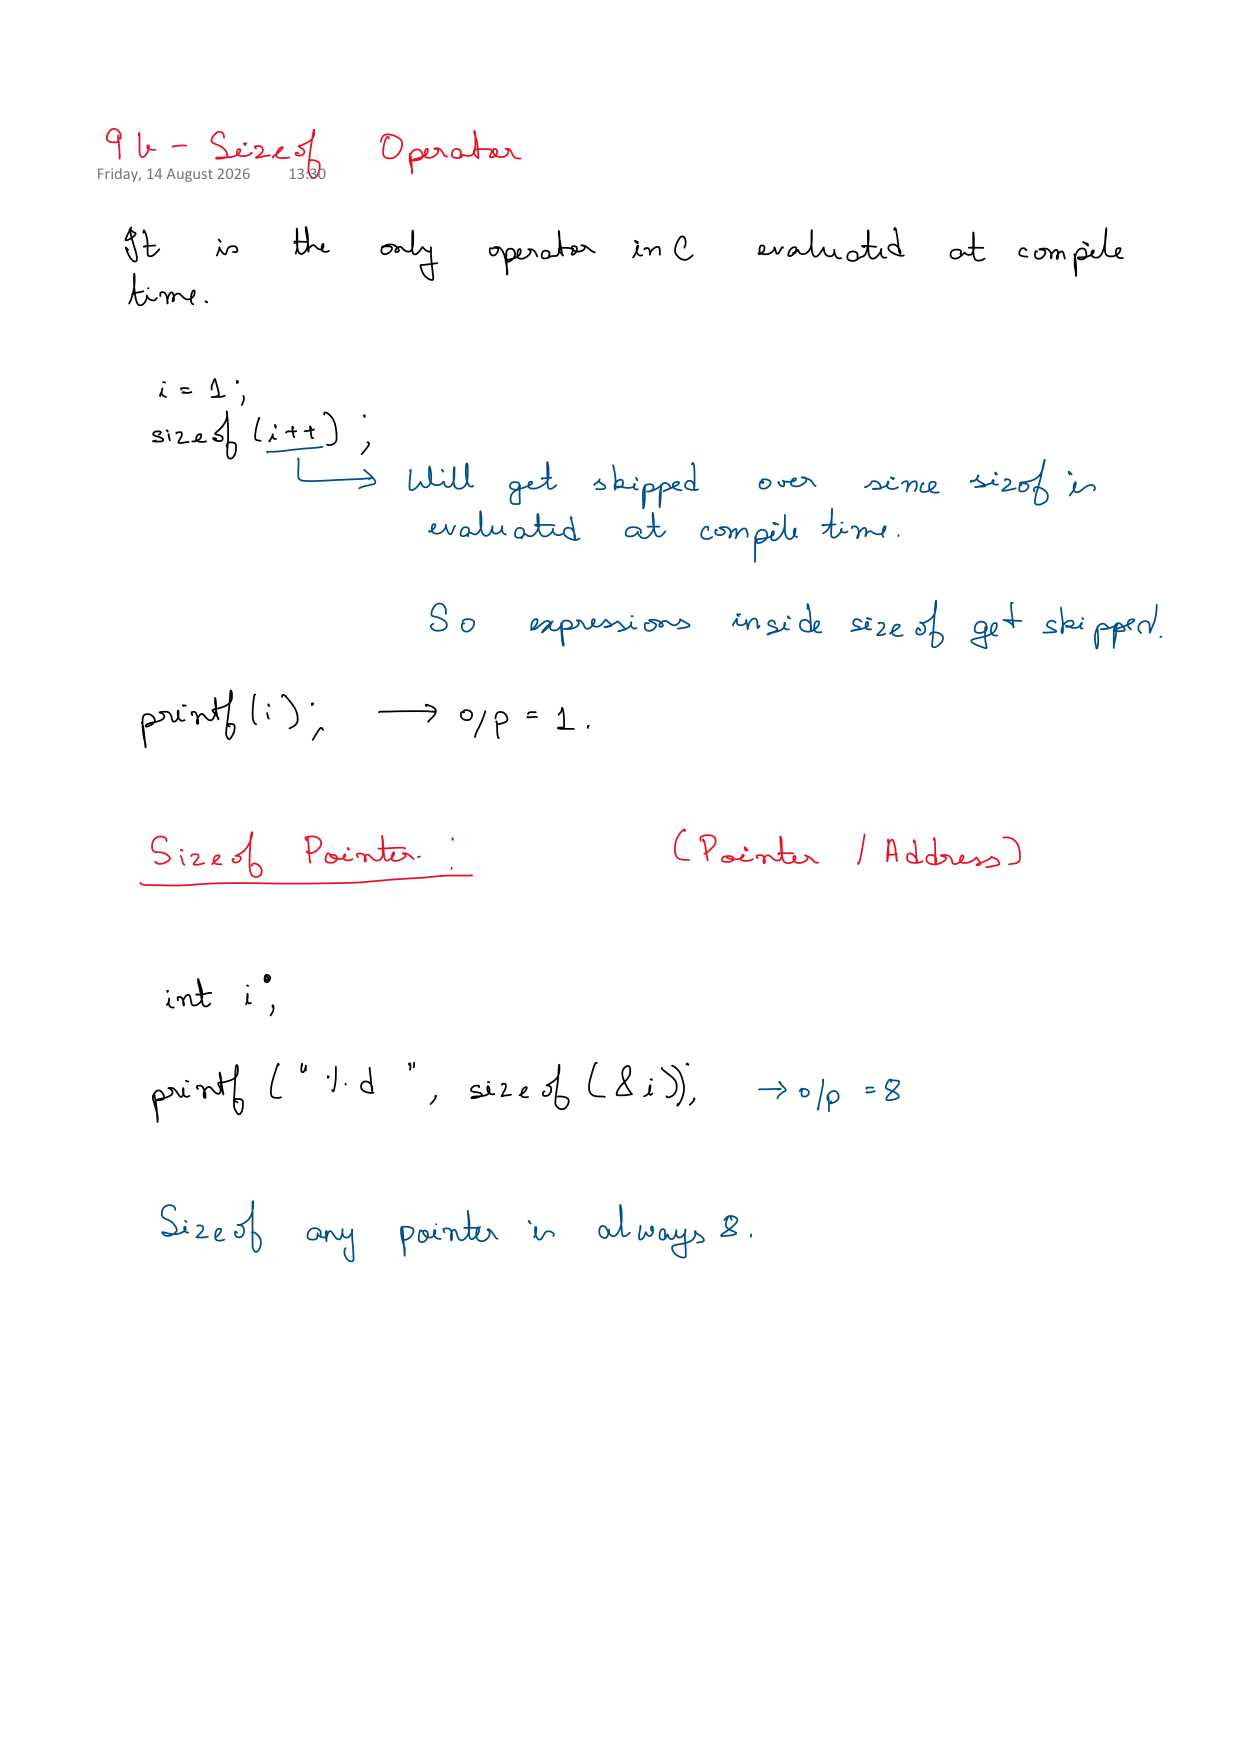 9b - Sizeof Operator
Friday, 14 August 2026 13:30
It is the only operator in C evaluated at compile
time.
i = 1;
sizeof (i++) ;
Will get skipped over since sizof is
evaluated at compile time.
So expressions inside sizeof get skipped.
printf(i); → o/p = 1.
Sizeof Pointer : (Pointer / Address)
int i;
printf ( " %d ", sizeof (&i)); → o/p = 8
Sizeof any pointer is always 8.